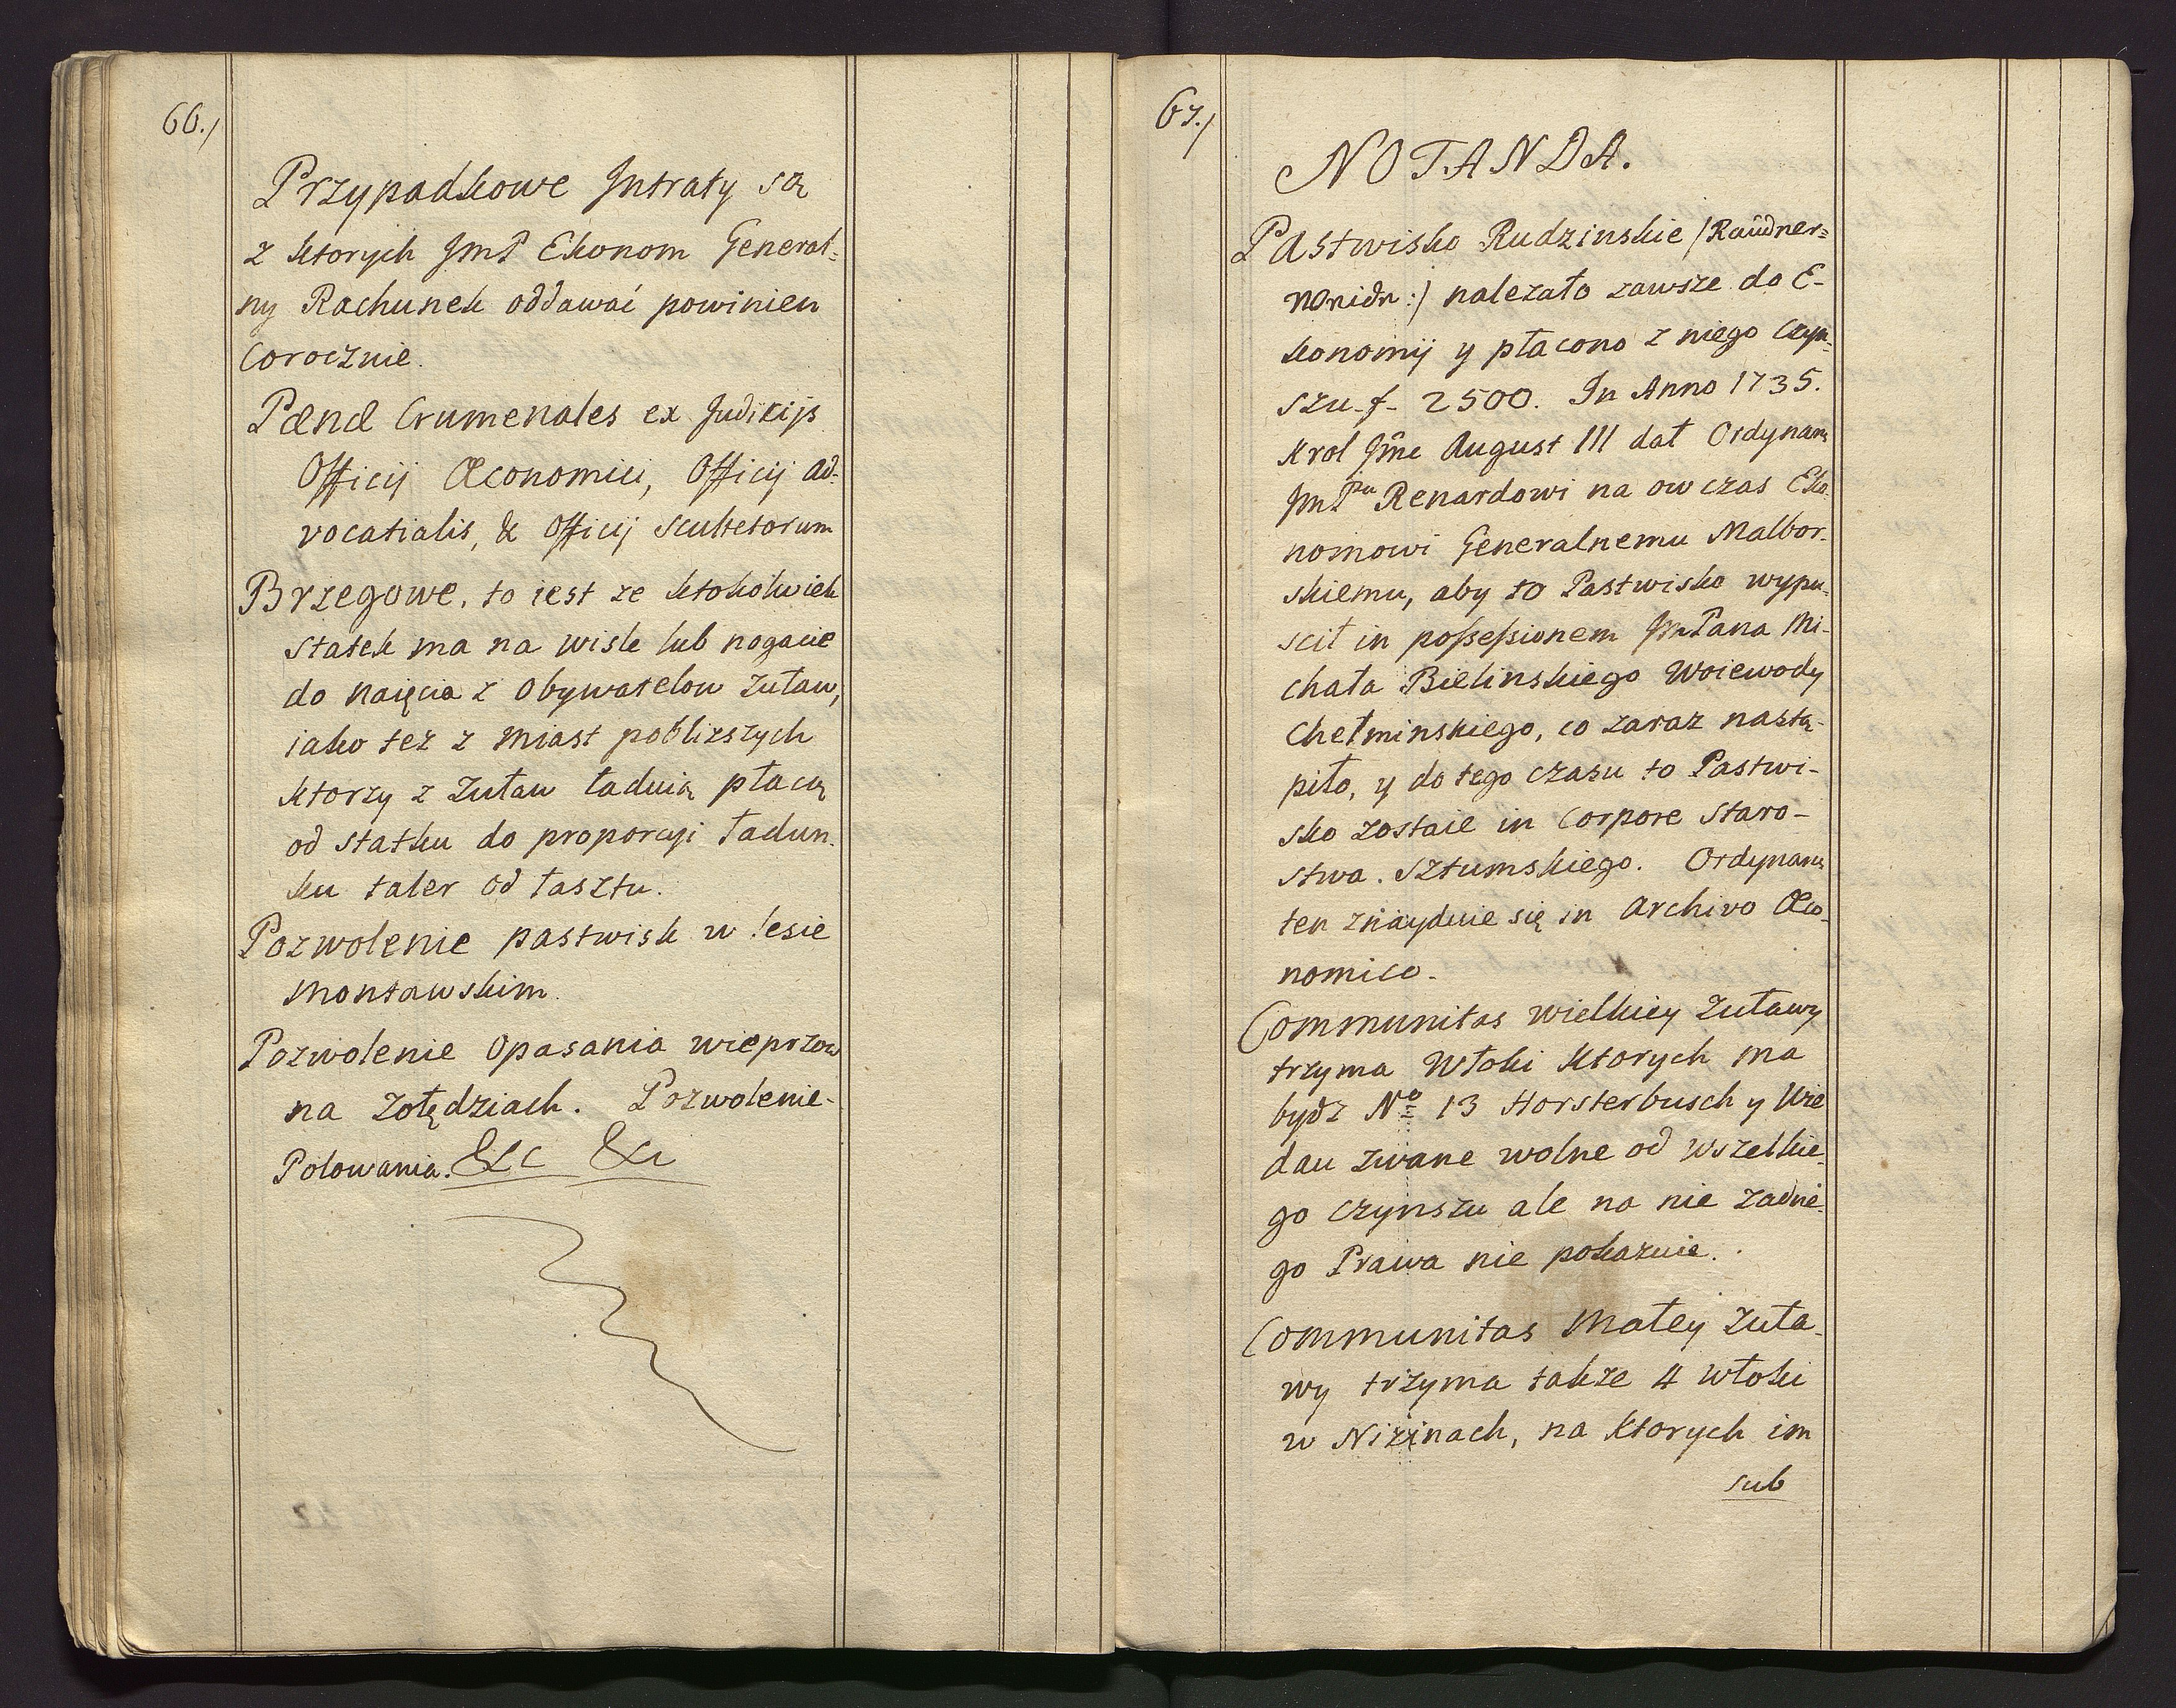 66./
Przypadkowe Intraty są
z ktorych JmP Ekonom General=
ny Rachunek oddawać powinien
Corocznie.
Pænæ Crumenales ex Judicijs
Officij Œconomici, Officij Ad=
vocatialis, & Officij Scultetorum
Brzegowe, to iest ze ktokolwiek
statek ma na wisle lub nogacie
do naięcia z Obywatelow Zuław,
iako tez z Miast poblizszych
ktorzy z Zuław ładuią płacą
od statku do proporcyi ładun-
ku taler od łasztu.
Pozwolenie pastwisk w lesie
Montawskim.
Pozwolenie Opasania wieprzow
na Zołędziach. Pozwolenie-
Polowania. &c &c
67./
NOTANDA.
Pastwisko Rudzinskie /Raüdner=
:/ nalezało zawsze do E-
konomij y płacono z niego Czyn=
szu-f- 2500. In Anno 1735.
Krol Jmc August III dał Ordynans
JmPu Renardowi na ow czas Eko-
nomowi Generalnemu Malbor-
skiemu, aby to Pastwisko wypu-
scił in possessionem JmPana Mi-
chała Bielinskiego Woiewody
Chełminskiego, co zaraz nastą-
piło, y do tego czasu to Pastwi-
sko zostaie in Corpore Staro-
stwa. Sztumskiego. Ordynans
ten znayduie się in Archivo Œco-
nomico.
Communitas wielkiey Zuławy
trzyma Włoki ktorych ma
bydz No 13 Horsterbusch y Wie
dau zwane wolne od wszelkie-
go czynszu ale na nie zadne-
go Prawa nie pokazuie.
Communitas Małey Zuła-
wy trzyma takze 4 włoki
w Nizinach, na ktorych im
sub